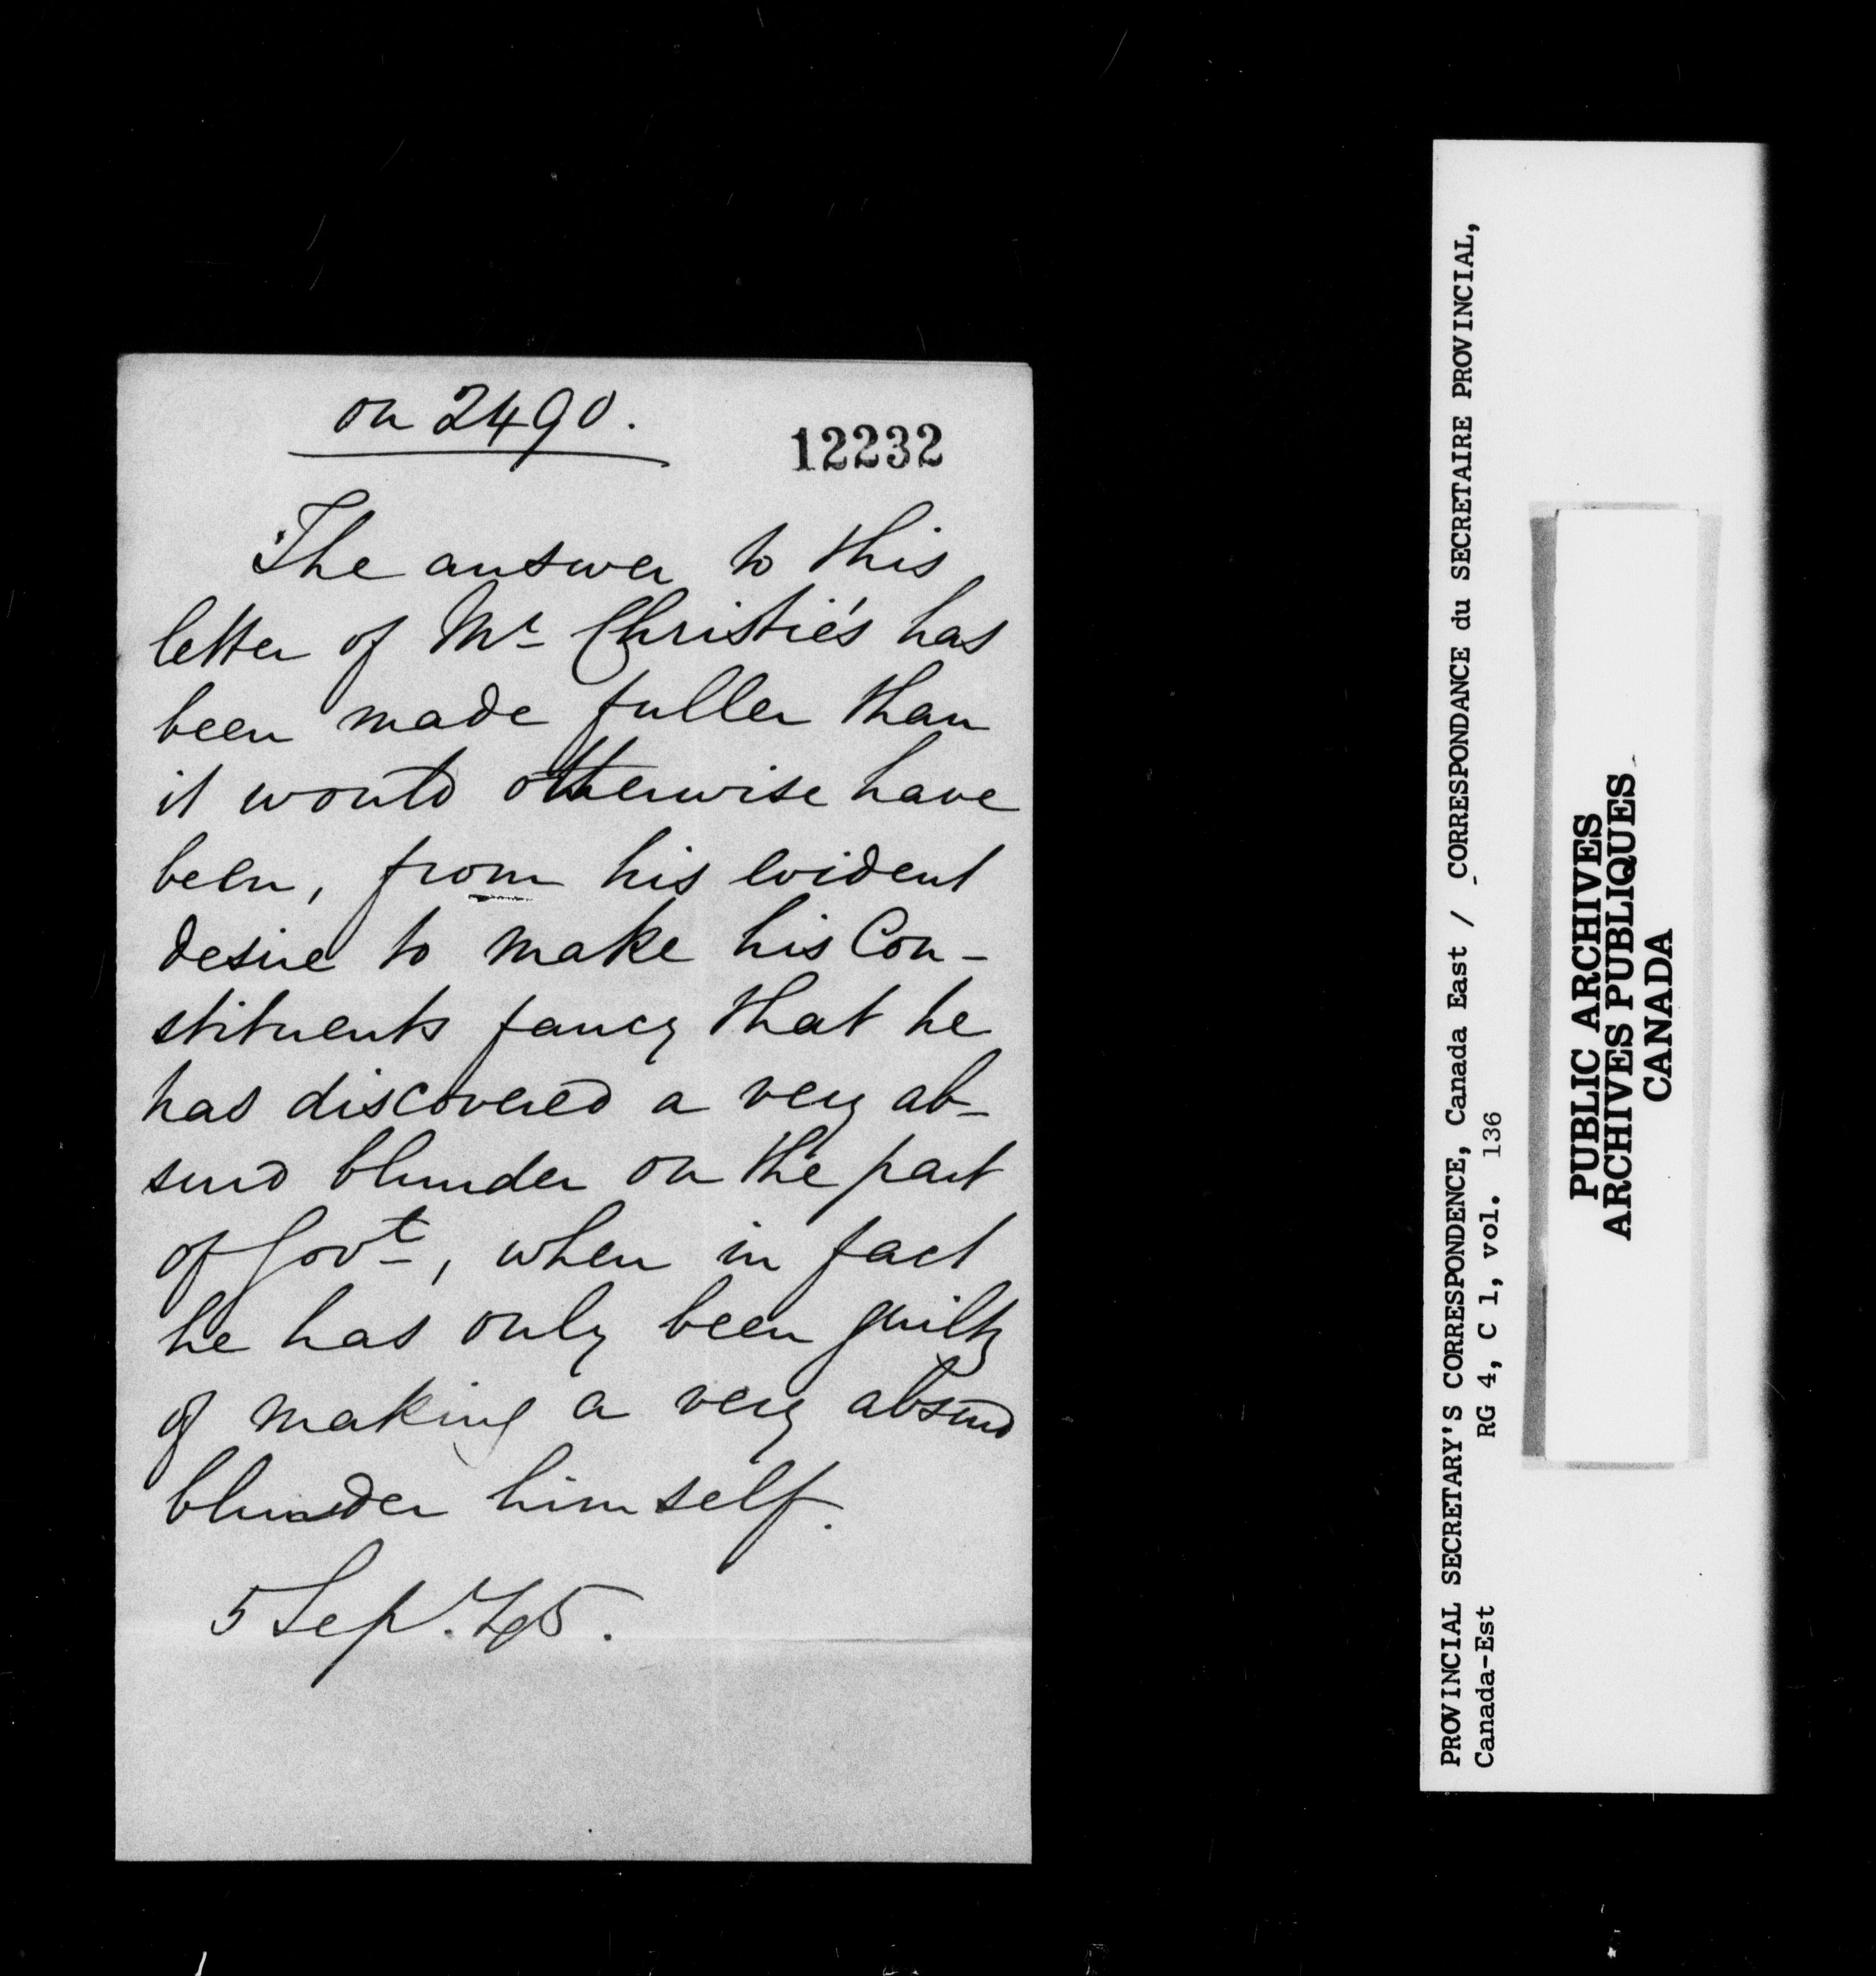 on 2490.
12232
The answer to this
letter of Mr Christie's has
been made fuller than
it would otherwise have
been, from his evident
desire to make his Con-
stituents fancy that he
has discovered a very ab-
surd blunder on the part
of Govt, when in fact
he has only been guilty
of making a very absurd
blunder himself.
5 Sep. 45.
PROVINCIAL SECRETARY'S CORRESPONDENCE, Canada East / CORRESPONDANCE du SECRETAIRE PROVINCIAL,
Canada-Est RG 4, C 1, vol. 136
PUBLIC ARCHIVES
ARCHIVES PUBLIQUES
CANADA